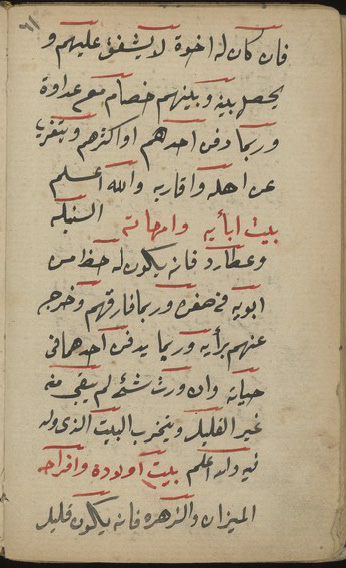 ٦١
فان كان له اخوة لا يشفق عليهم و
يحصل بينه وبينهم خصام مع عداوة
وربما دفن احدهم او اكثرهم ويتغرب
عن اهله واقاربه والله اعلم
بيت ابأيه وامهاته السنبلة
وعطارد فانه يكون له حظ من
ابويه في صغره وربما فارقهم وخرج
عنهم برأيه وربما يدفن احدهما في
حياته وان ورث شئ لم يبقي منه
غير القليل ويتخرب البيت الذي ولد
فيه والله اعلم بيت اولاده وافراحه
الميزان والزهره فانه يكون قليل